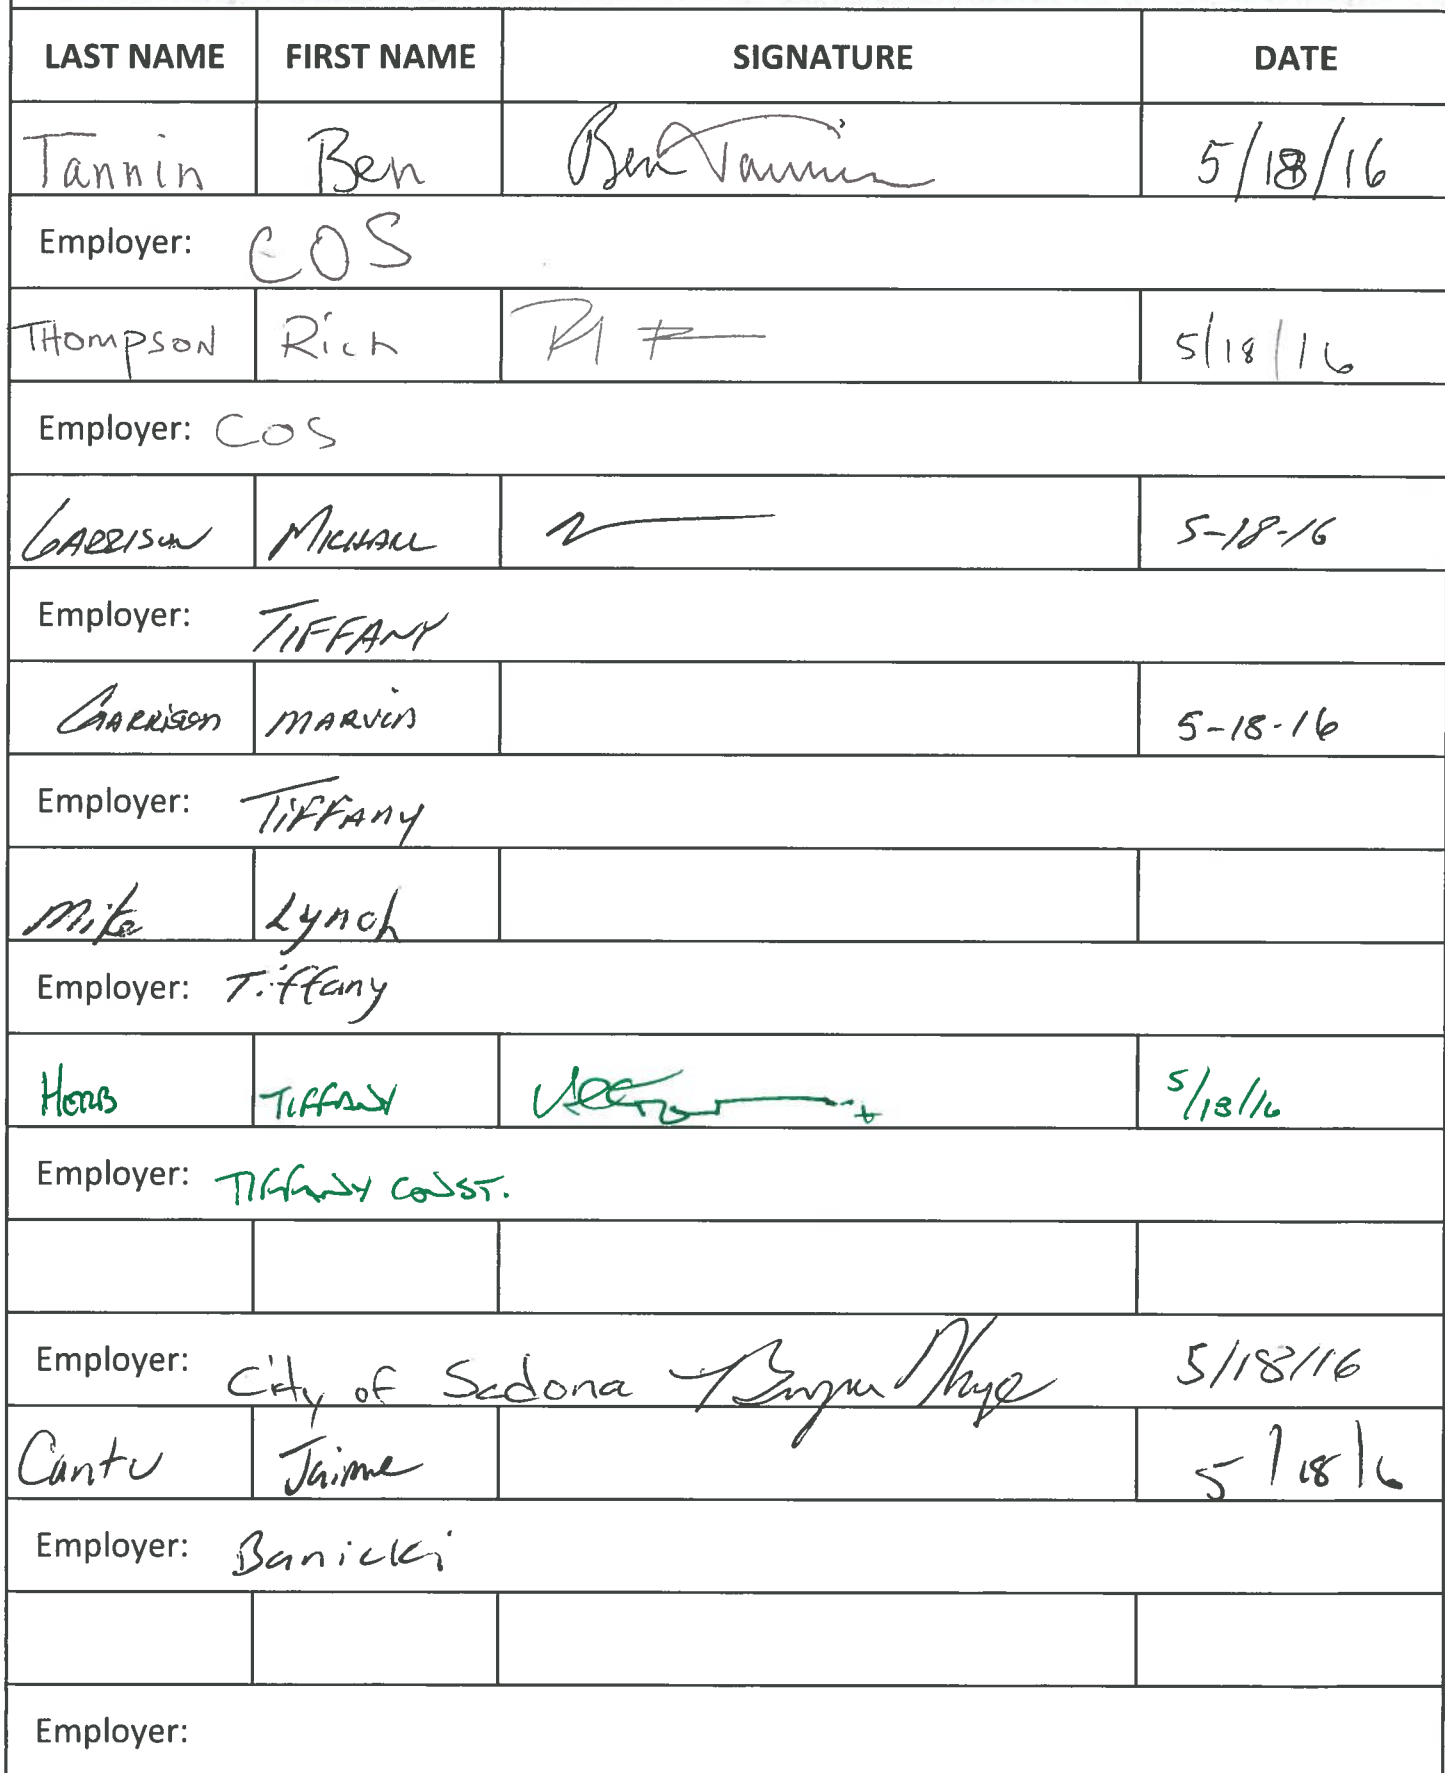 LAST NAME FIRST NAME SIGNATURE DATE
Tannin Ben Ben Tannin 5/18/16
Employer: COS
THOMPSON Rich 5/18/16
Employer: COS
GARRISON MICHAEL 5-18-16
Employer: TIFFANY
GARRISON MARVIN 5-18-16
Employer: TIFFANY
Mike Lynch
Employer: Tiffany
HERB TIFFANY 5/18/16
Employer: TIFFANY CONST.
Employer: City of Sedona 5/18/16
Cantu Jaime 5/18/16
Employer: Banicki
Employer: